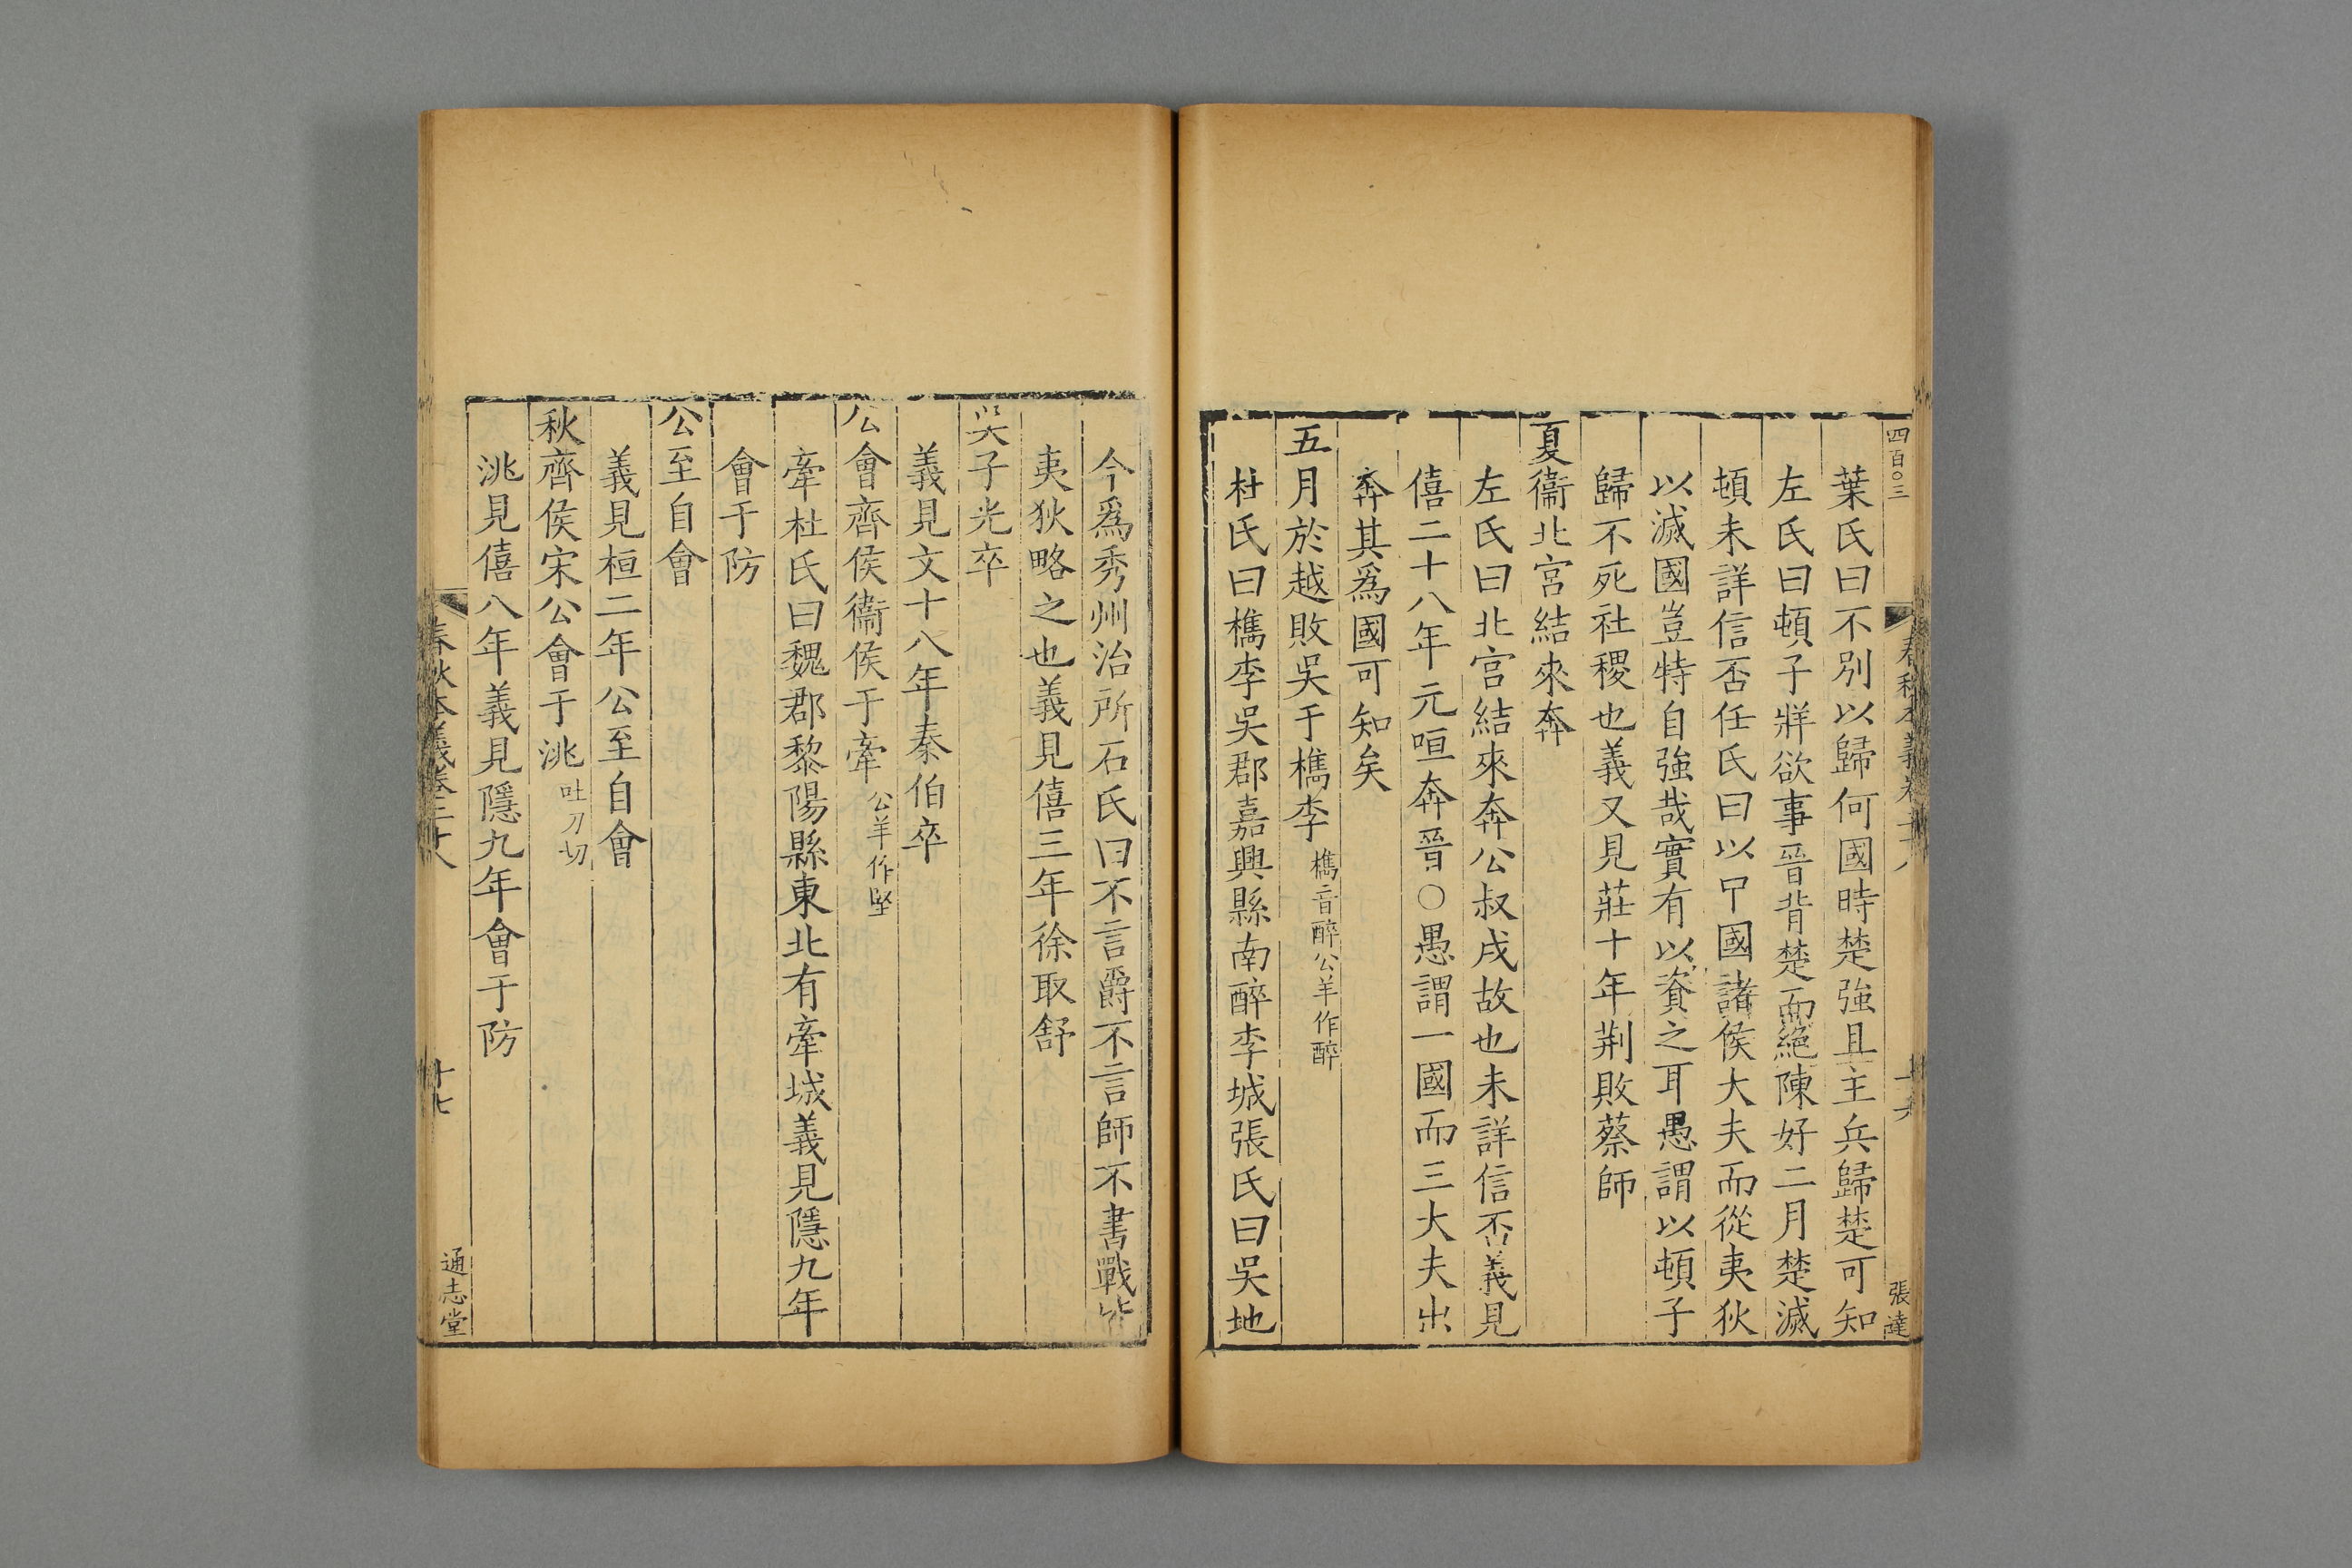 四百〇三
春秋本義卷二十八
張達
葉氏曰不別以歸何國時楚強且主兵歸楚可知
左氏曰頓子牂欲事晉背楚而絕陳好二月楚滅
頓未詳信否任氏曰以中國諸侯大夫而從夷狄
以滅國豈特自強哉實有以資之耳愚謂以頓子
歸不死社稷也義又見莊十年荆敗蔡師
夏衞北宮結來奔
左氏曰北宮結來奔公叔戌故也未詳信否義見
僖二十八年元咺奔晉○愚謂一國而三大夫出
奔其爲國可知矣
五月於越敗吳于檇李檇音醉公羊作醉
杜氏曰檇李吳郡嘉興縣南醉李城張氏曰吳地
今爲秀州治所石氏曰不言爵不言師不書戰皆
夷狄略之也義見僖三年徐取舒
吳子光卒
義見文十八年秦伯卒
公會齊侯衞侯于牽公羊作堅
牽杜氏曰魏郡黎陽縣東北有牽城義見隱九年
會于防
公至自會
義見桓二年公至自會
秋齊侯宋公會于洮吐刀切
洮見僖八年義見隱九年會于防
春秋本義卷二十八
十七
通志堂